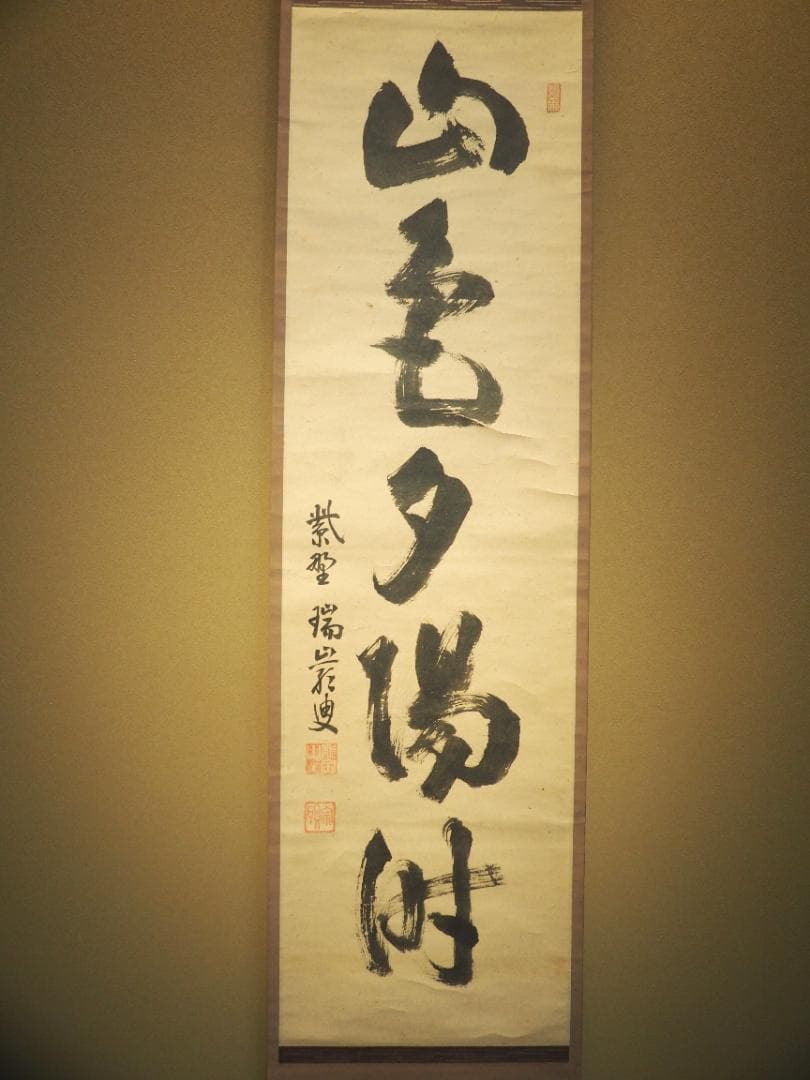 山色夕陽時
紫野 瑞巌叟